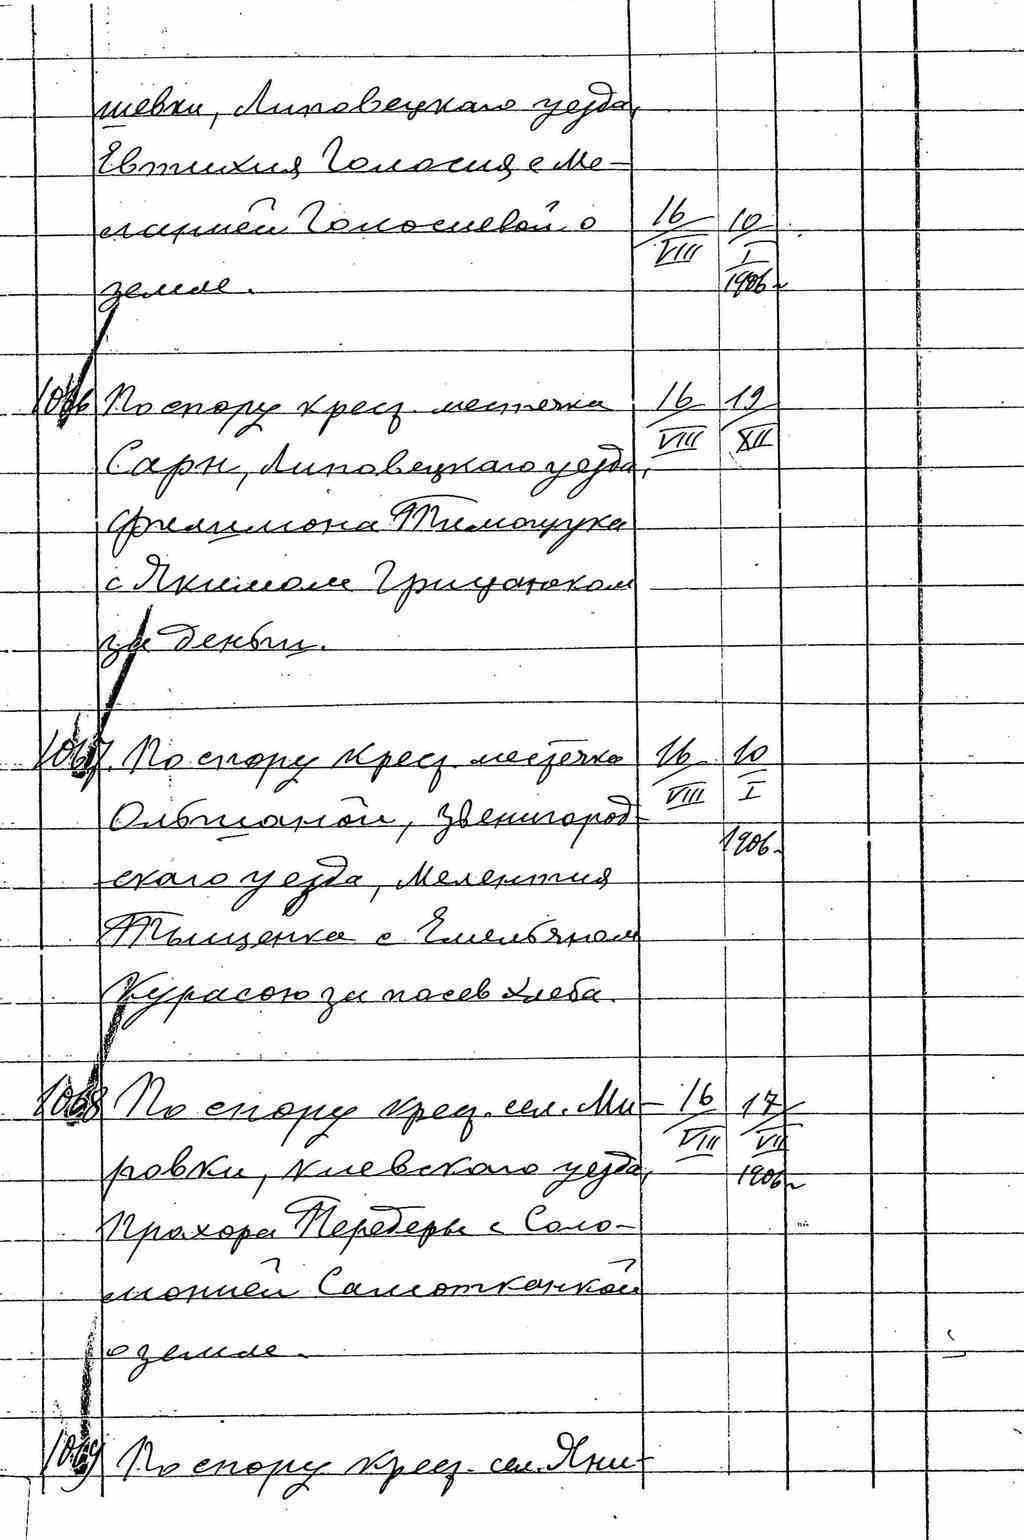 шевки, Липовецкаго уезда,
Евтихия Голосия с Ме-
ланией Голосиевой о
земле.
16/VIII 10/I 1906 г.
1066 По спору крест. местечка
Сарн, Липовецкаго уезда,
Филимона Тимощука
с Якимом Грицанюком
за деньги.
16/VIII 19/XII
1067. По спору крест. местечка
Ольшаной, Звенигород-
скаго уезда, Мелентия
Тыщенка с Емельяном
Курасою за посев хлеба.
16/VIII 10/I 1906 г.
1068 По спору крест. сел. Ми-
ровки, Киевскаго уезда,
Прохора Перебери с Соло-
монией Самотканкой
о земле.
16/VIII 17/VII 1906 г.
1069 По спору крест. сел. Яни-